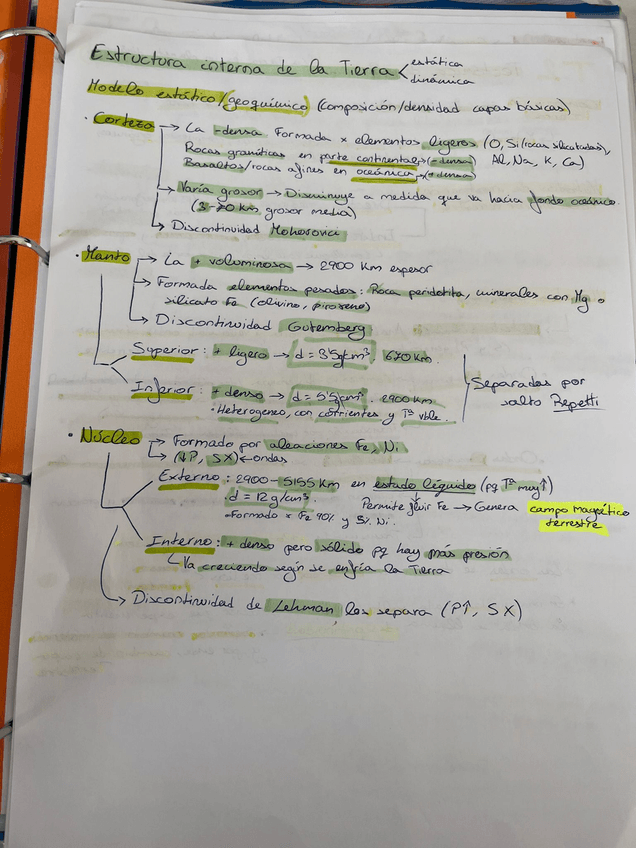 Estructura interna de la Tierra < estática
dinámica
Modelo estático/geoquímico (composición/densidad capas básicas)
· Corteza → La -densa. Formada x elementos ligeros (O, Si (rocas silicatadas),
Rocas graníticas en parte continental → (-densa) Al, Na, K, Ca)
Basaltos/rocas afines en oceánica → (+densa)
→ Varía grosor → Disminuye a medida que va hacia fondo oceánico.
(3-70 km, grosor media)
→ Discontinuidad Mohorovici
· Manto → La + voluminosa → 2900 km espesor
→ Formada elementos pesados: Roca peridotita, minerales con Mg o
silicato Fe (olivino, piroxeno)
→ Discontinuidad Gutemberg
Superior: + ligero → d = 3'5g/cm³. 670 km.
Inferior: + denso → d = 5'5g/cm³. 2900 km
· Heterogeneo, con corrientes y Tª vble.
Separadas por
salto Repetti
· Núcleo → Formado por aleaciones Fe, Ni
→ (↓P, SX) ← ondas
Externo: 2900-5155 km en estado líquido (pq Tª muy ↑)
· d = 12g/cm³. Permite fluir Fe → Genera campo magnético
terrestre
· Formado x Fe 90% y 5% Ni.
Interno: + denso pero sólido pq hay más presión
Va creciendo según se enfría la Tierra
→ Discontinuidad de Lehman, los separa (P↑, SX)